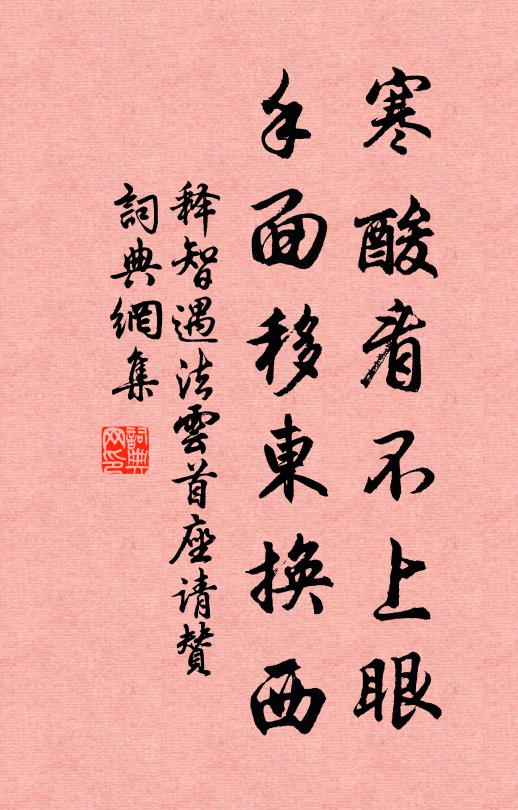 寒酸看不上眼
手面移東換西
释智遇法雲首座请赞
詞典網集
詞典
网印